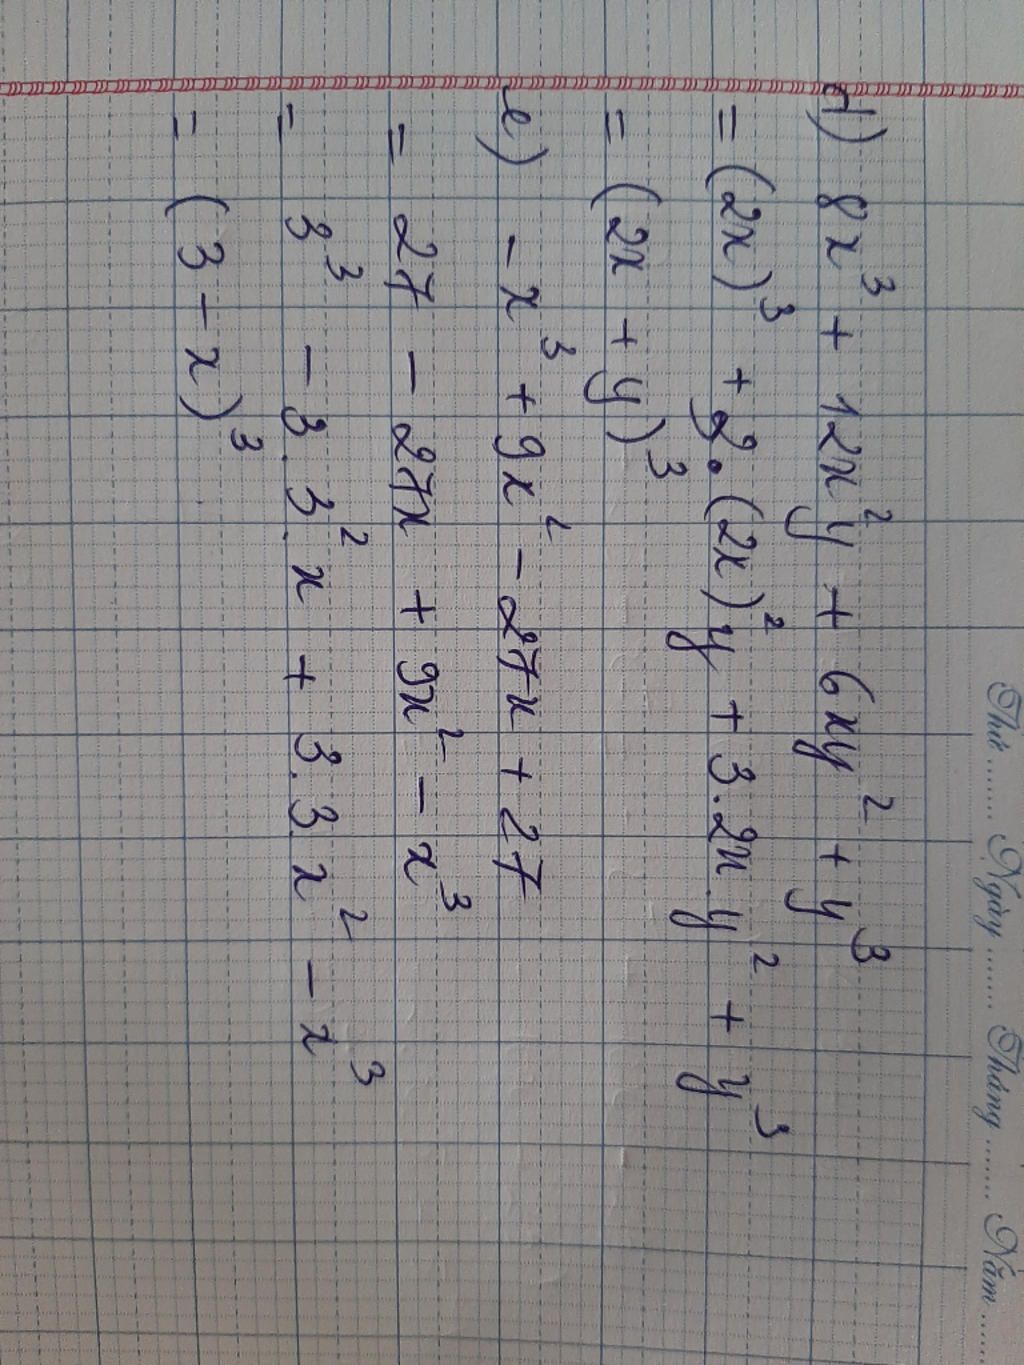 Thứ ........ Ngày ........ Tháng ........ Năm ........
d) 8x³ + 12x²y + 6xy² + y³
= (2x)³ + 2.(2x)²y + 3.2x.y² + y³
= (2x + y)³
e) - x³ + 9x² - 27x + 27
= 27 - 27x + 9x² - x³
= 3³ - 3.3².x + 3.3.x² - x³
= (3 - x)³